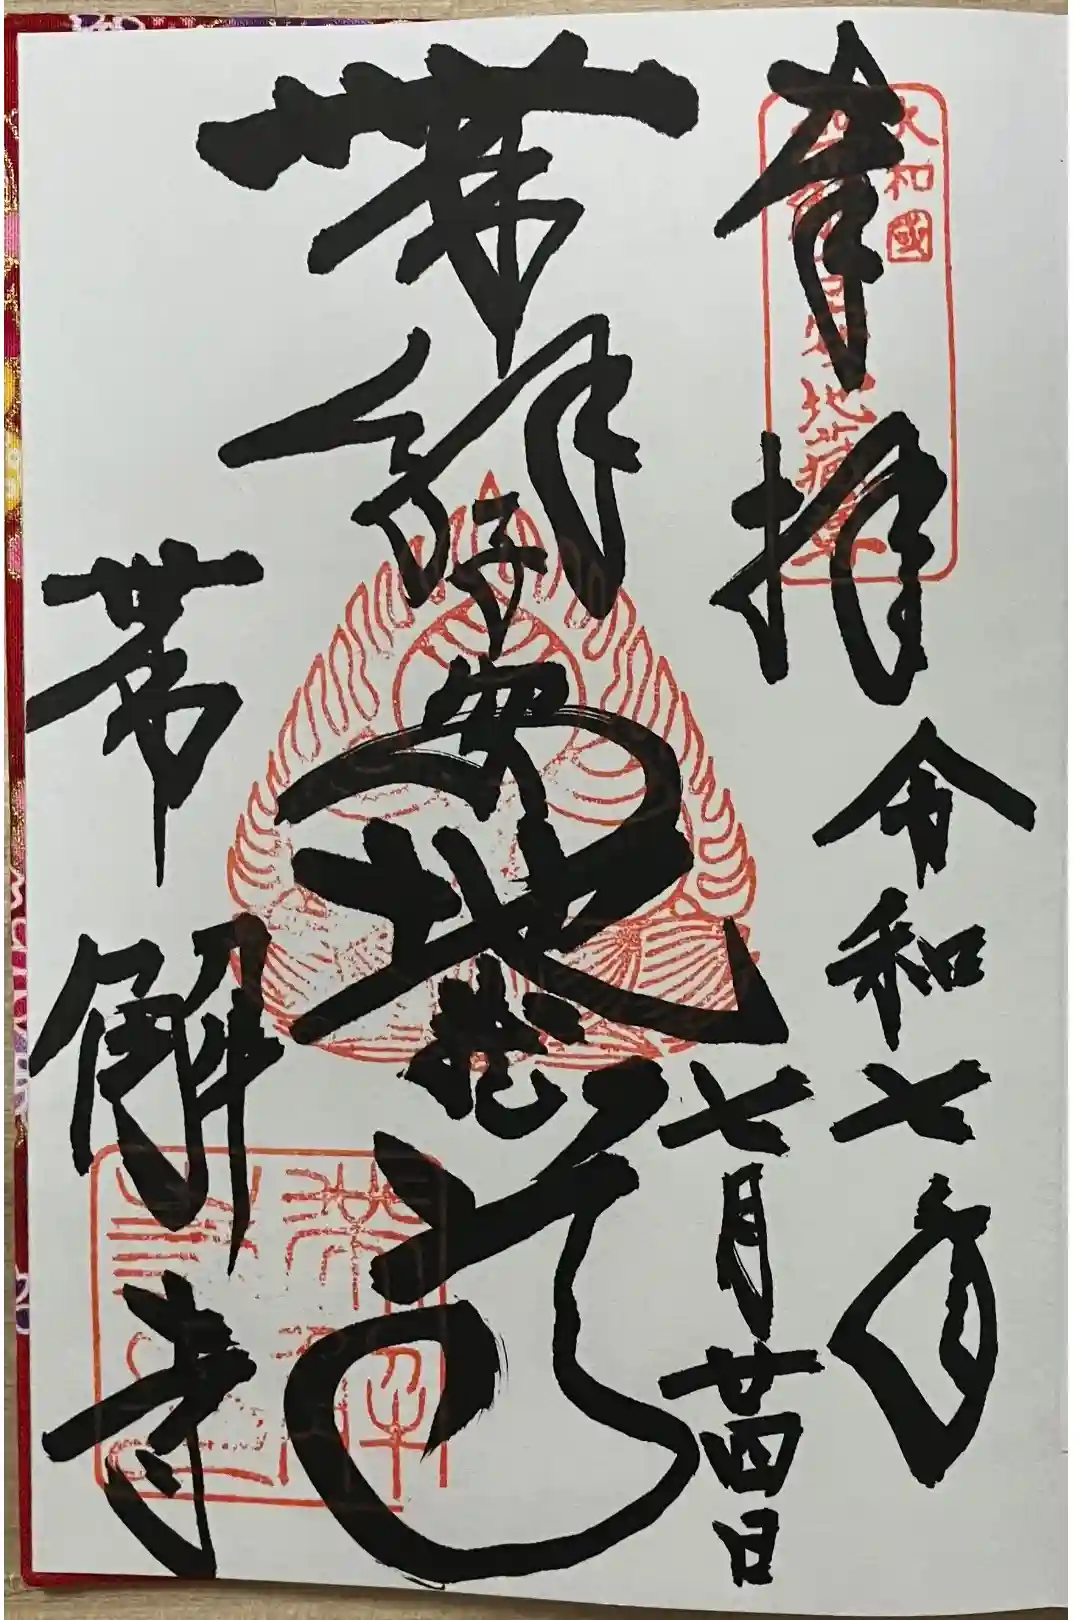 奉拝
令和七年
七月廿四日
大和國
地蔵尊
帯解
子安
地蔵
帯解寺